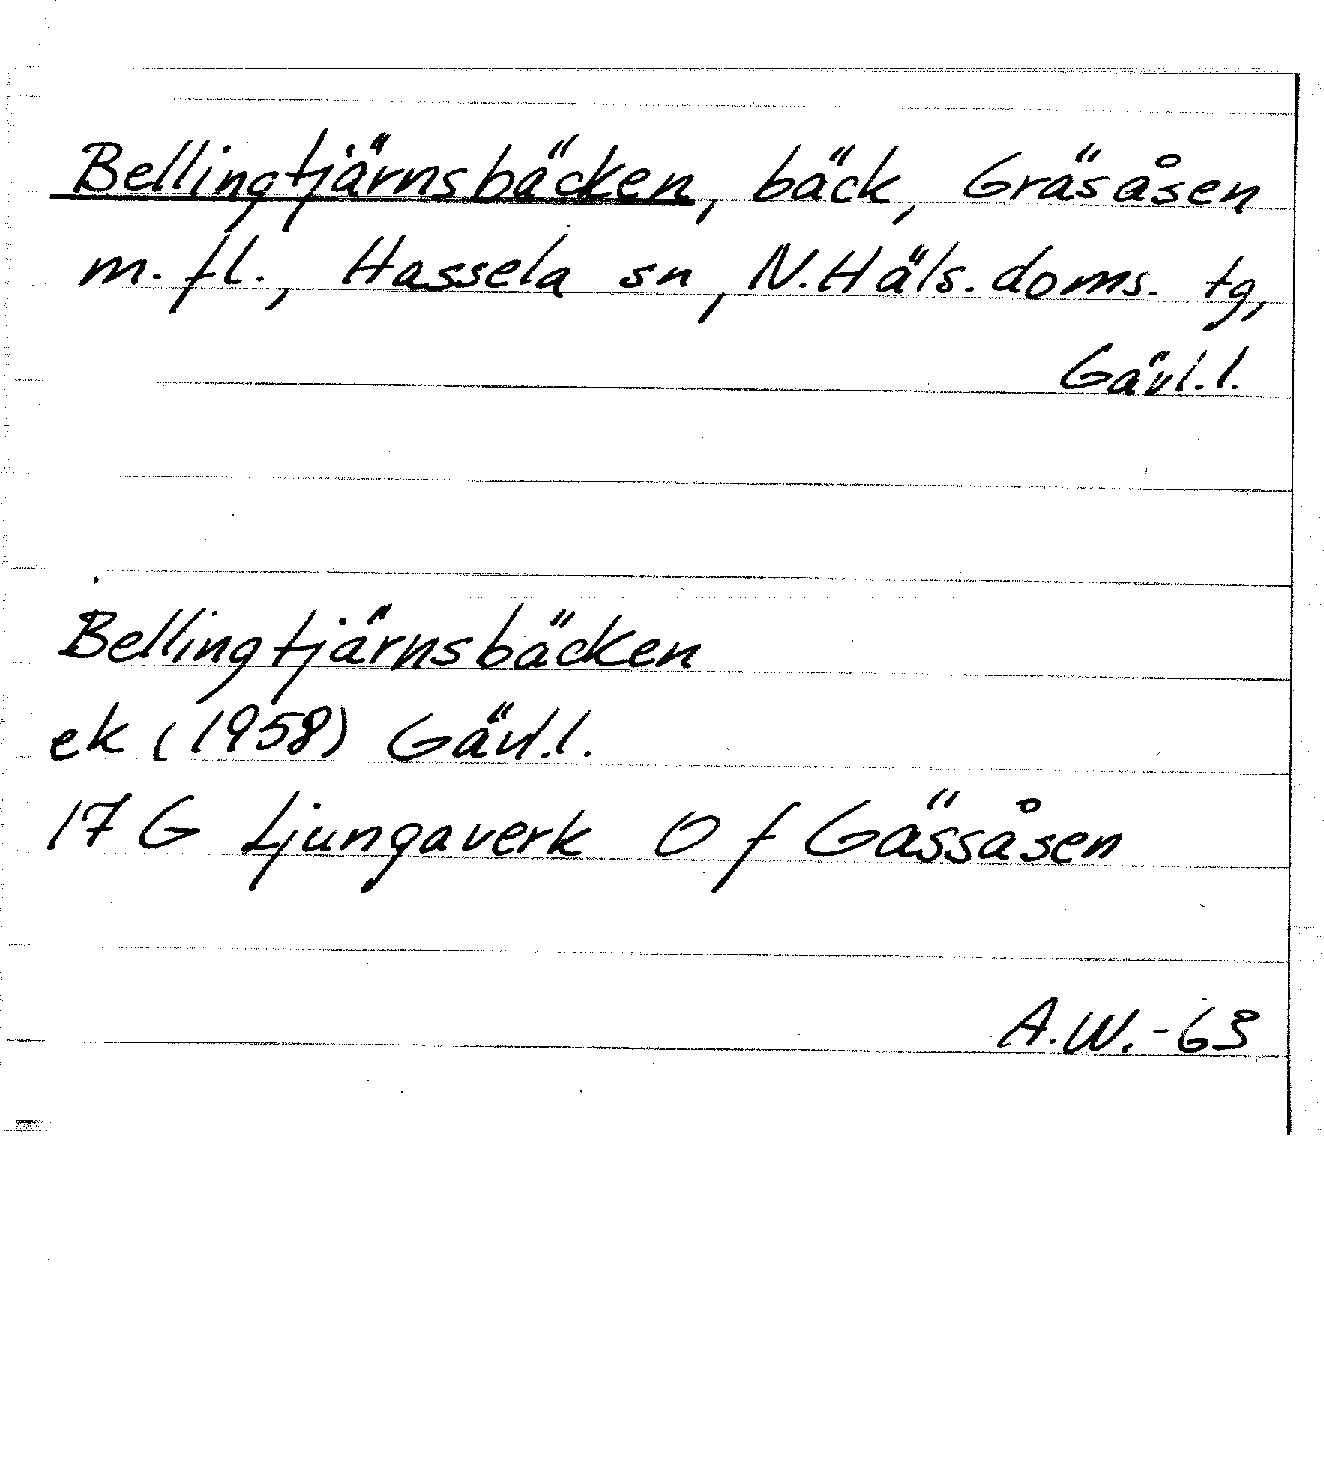 Bellingtjärnsbäcken, bäck, Gräsåsen
m.fl., Hassela sn, N.Häls.doms. tg,
Gävl.l.
Bellingtjärnsbäcken
ek (1958) Gävl.l.
17 G Ljungaverk O f Gässåsen
A.W.-63